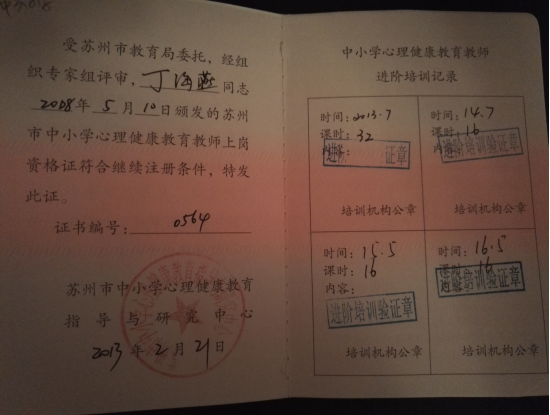 受苏州市教育局委托，经组
织专家组评审，丁海燕同志
2008年5月10日颁发的苏州
市中小学心理健康教育教师上岗
资格证符合继续注册条件，特发
此证。
证书编号：0564
苏州市中小学心理健康教育
指导与研究中心
2013年2月21日
中小学心理健康教育教师
进阶培训记录
时间：2013.7
课时：32
内容：
进阶 证章
培训机构公章
时间：14.7
课时：16
内容：
进阶培训验证章
培训机构公章
时间：15.5
课时：16
内容：
进阶培训验证章
培训机构公章
时间：16.5
课时：16
内容：
进阶培训验证章
培训机构公章